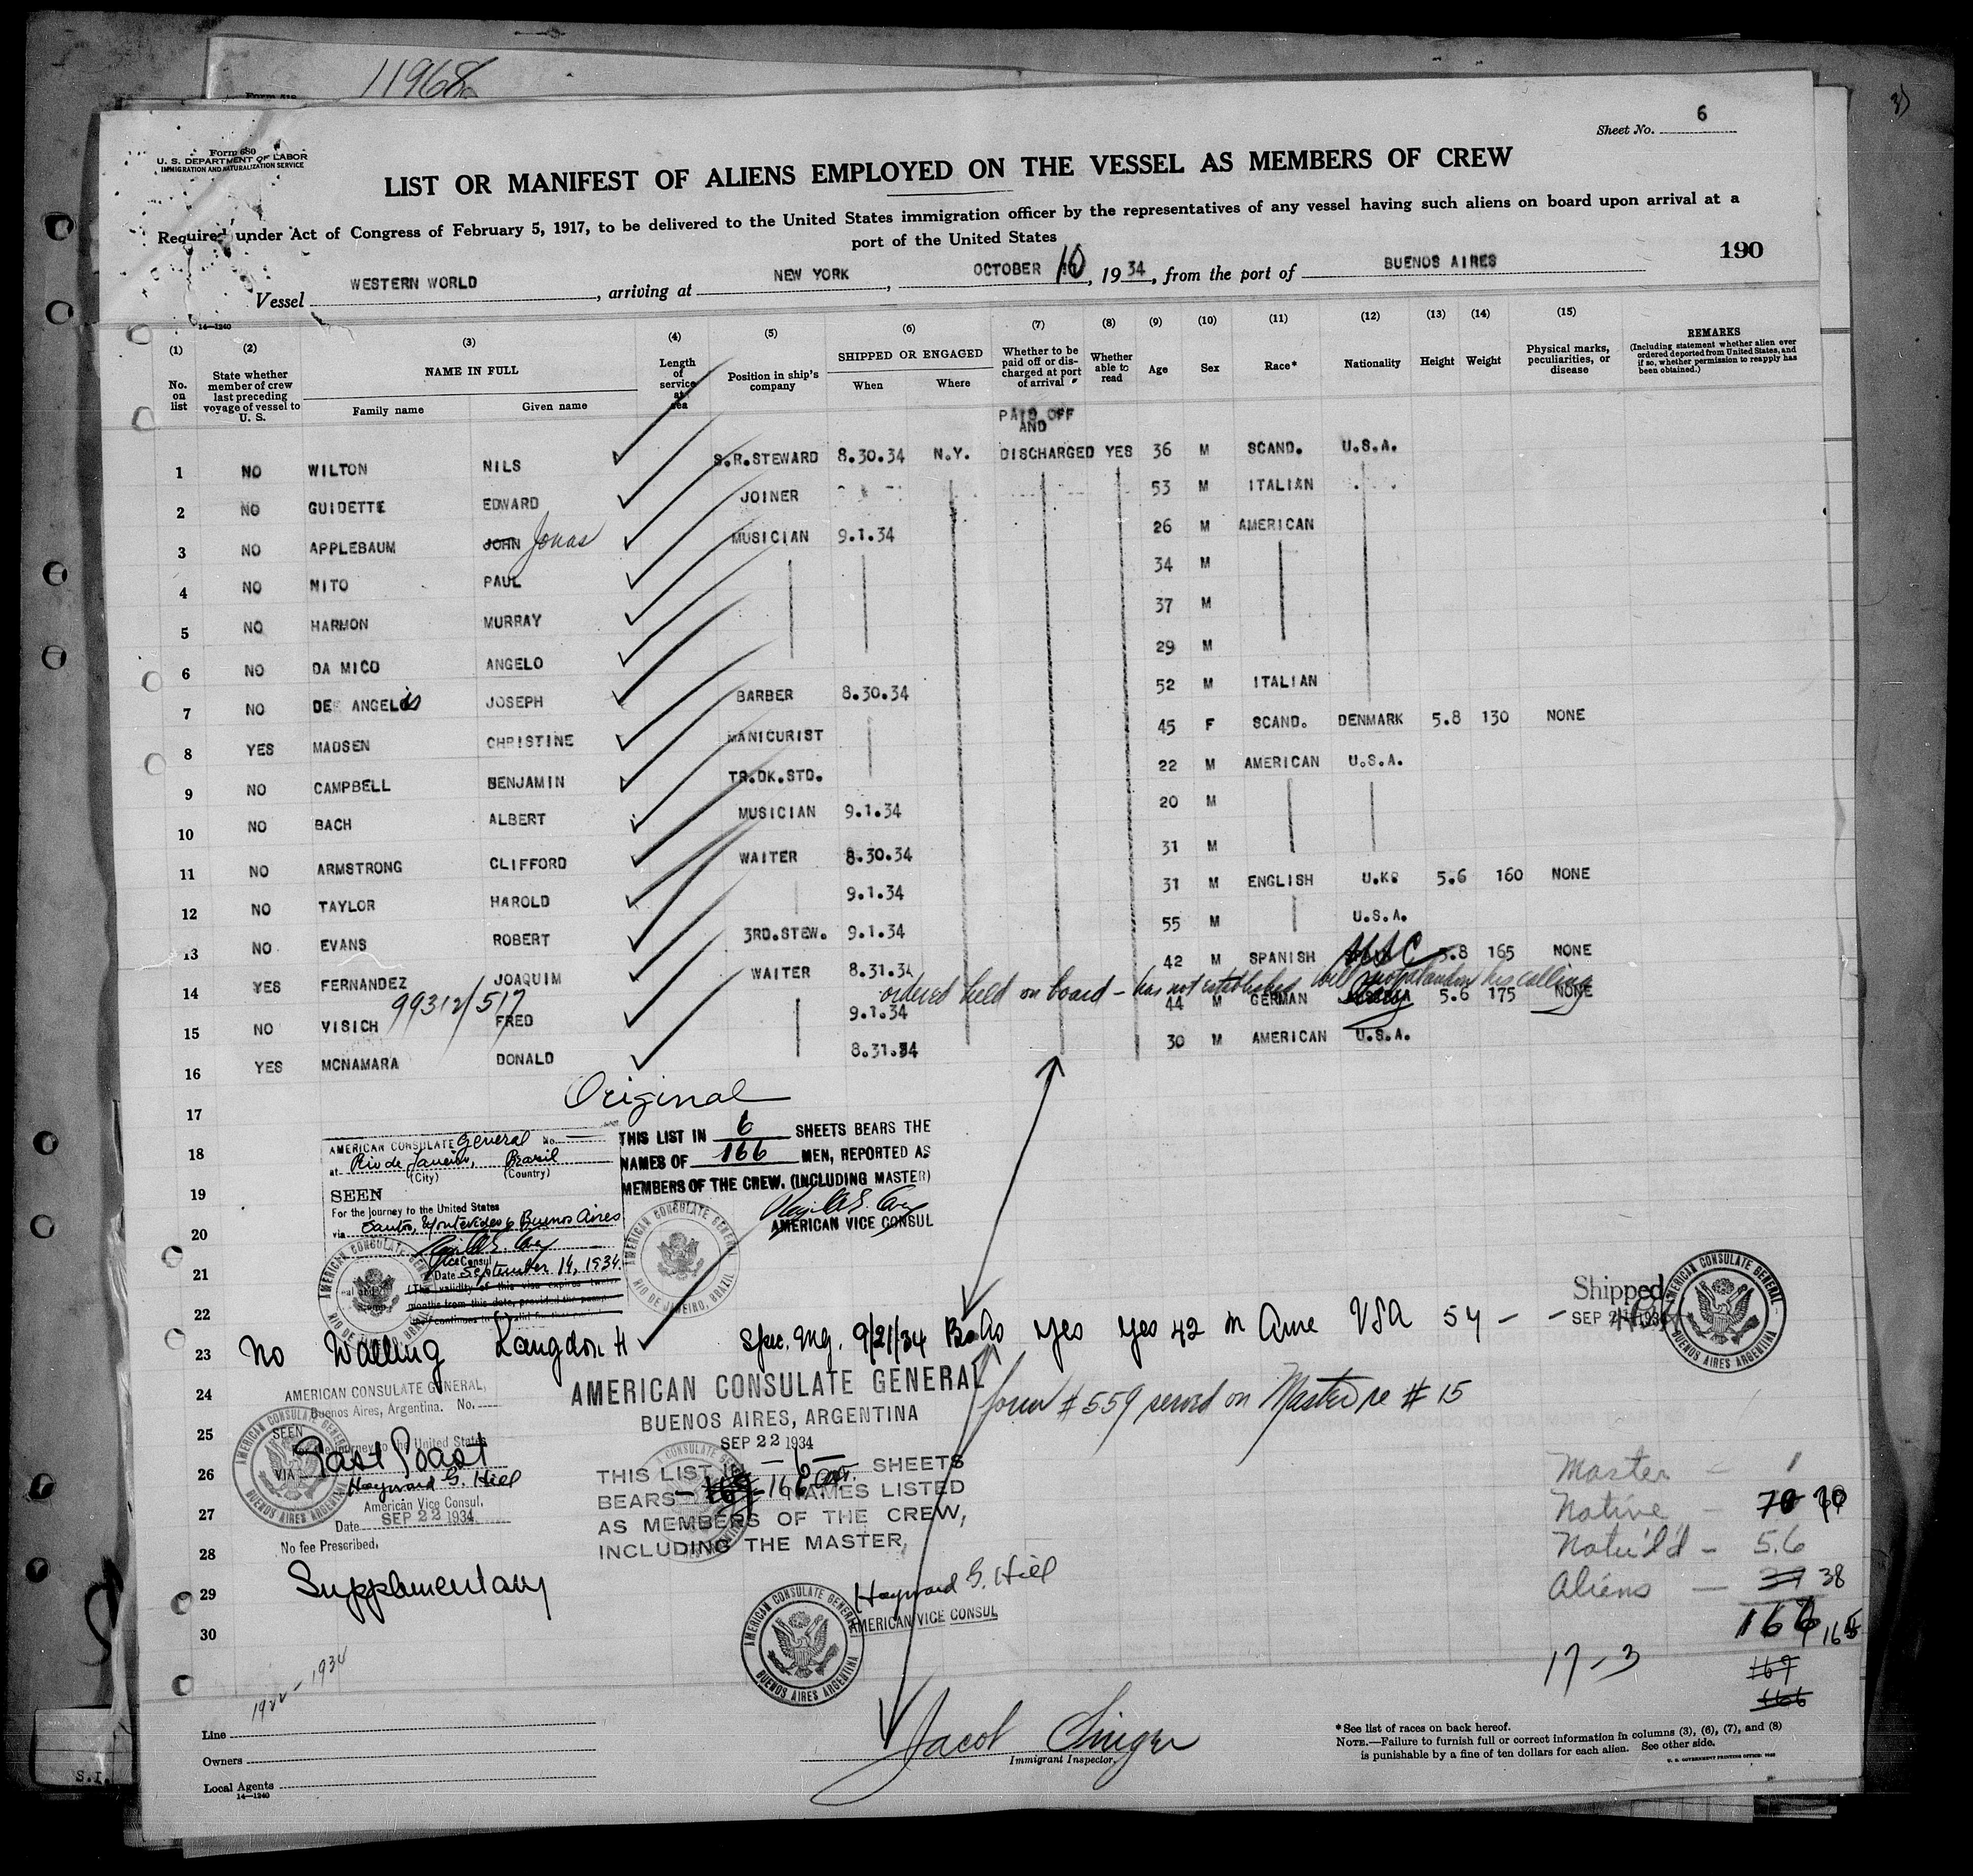 11968
Form 680
U. S. DEPARTMENT OF LABOR
IMMIGRATION AND NATURALIZATION SERVICE
Sheet No. 6
LIST OR MANIFEST OF ALIENS EMPLOYED ON THE VESSEL AS MEMBERS OF CREW
Required under Act of Congress of February 5, 1917, to be delivered to the United States immigration officer by the representatives of any vessel having such aliens on board upon arrival at a
port of the United States
190
Vessel WESTERN WORLD, arriving at NEW YORK, OCTOBER 10, 1934, from the port of BUENOS AIRES
14—1240
(1) (2) (3) (4) (5) (6) (7) (8) (9) (10) (11) (12) (13) (14) (15)
No. on list
State whether member of crew last preceding voyage of vessel to U. S.
NAME IN FULL
Family name
Given name
Length of service at sea
Position in ship's company
SHIPPED OR ENGAGED
When
Where
Whether to be paid off or discharged at port of arrival
Whether able to read
Age
Sex
Race*
Nationality
Height
Weight
Physical marks, peculiarities, or disease
REMARKS
(Including statement whether alien ever ordered deported from United States, and if so, whether permission to reapply has been obtained.)
PAID OFF
AND
1 NO WILTON NILS S.R.STEWARD 8.30.34 N.Y. DISCHARGED YES 36 M SCAND. U.S.A.
2 NO GUIDETTE EDWARD JOINER 53 M ITALIAN
3 NO APPLEBAUM JOHN Jonas MUSICIAN 9.1.34 26 M AMERICAN
4 NO NITO PAUL 34 M
5 NO HARMON MURRAY 37 M
6 NO DA MICO ANGELO 29 M
7 NO DE ANGELIS JOSEPH BARBER 8.30.34 52 M ITALIAN
8 YES MADSEN CHRISTINE MANICURIST 45 F SCAND. DENMARK 5.8 130 NONE
9 NO CAMPBELL BENJAMIN TR.DK.STD. 22 M AMERICAN U.S.A.
10 NO BACH ALBERT MUSICIAN 9.1.34 20 M
11 NO ARMSTRONG CLIFFORD WAITER 8.30.34 31 M
12 NO TAYLOR HAROLD 9.1.34 31 M ENGLISH U.K. 5.6 160 NONE
13 NO EVANS ROBERT 3RD.STEW. 9.1.34 55 M U.S.A.
14 YES FERNANDEZ JOAQUIM WAITER 8.31.34 42 M SPANISH USC 5.8 165 NONE
99312/517 ordered held on board - has not established will not abandon his calling
15 NO VISICH FRED 9.1.34 44 M GERMAN 5.6 175 NONE
16 YES MCNAMARA DONALD 8.31.34 30 M AMERICAN U.S.A.
17
Original
18
AMERICAN CONSULATE General No.
at Rio de Janeiro, Brazil
(City) (Country)
SEEN
For the journey to the United States
via Santos, Montevideo & Buenos Aires
Vice Consul
Date September 14, 1934.
THIS LIST IN 6 SHEETS BEARS THE
NAMES OF 166 MEN, REPORTED AS
MEMBERS OF THE CREW. (INCLUDING MASTER)
AMERICAN VICE CONSUL
AMERICAN CONSULATE GENERAL
RIO DE JANEIRO, BRAZIL
19
20
21
22
Shipped
SEP 21 1934
AMERICAN CONSULATE GENERAL
BUENOS AIRES ARGENTINA
23 No Walling Langdon H Spec. Eng. 9/21/34 Bs As yes yes 42 m Ame USA 54 - -
24
AMERICAN CONSULATE GENERAL,
Buenos Aires, Argentina. No.
SEEN
For the journey to the United States
VIA East Coast
Hayward G. Hill
American Vice Consul.
Date SEP 22 1934
No fee Prescribed.
Supplementary
AMERICAN CONSULATE GENERAL
BUENOS AIRES, ARGENTINA
SEP 22 1934
THIS LIST IN - 6 - SHEETS
BEARS 166 NAMES LISTED
AS MEMBERS OF THE CREW,
INCLUDING THE MASTER,
Hayward G. Hill
AMERICAN VICE CONSUL
AMERICAN CONSULATE GENERAL
BUENOS AIRES ARGENTINA
form # 559 served on Master re # 15
25
26
27
28
29
30
Master - 1
Native - 70
Natu'l'd - 56
Aliens - 37 38
166 165
167
166
17-3
1922-1934
Line
Owners
Local Agents
14—1240
Jacob Singer
Immigrant Inspector.
*See list of races on back hereof.
NOTE.—Failure to furnish full or correct information in columns (3), (6), (7), and (8)
is punishable by a fine of ten dollars for each alien. See other side.
S.I.